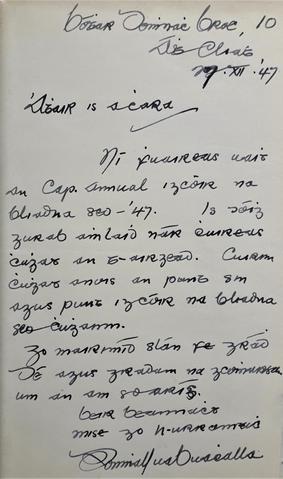 Bótar Domnac Broc, 10
Át Cliat
.XII.'47
Atair is a cara
Ní fuaireas uait
an Cap. Annual i gcóir na
bliadna seo -'47. Is dóig
gurab amlaid nár cuireas
cúgat an t-airgead. Cuirim
cúgat anois an punt sin
agus punt i gcóir na bliadna
seo cúgainn.
Go mairimíd slán fé grád
Dé agus gradam na gcomursan
um an am so arís.
beir beannact
mise go h-urramac
Domnall ua buacalla